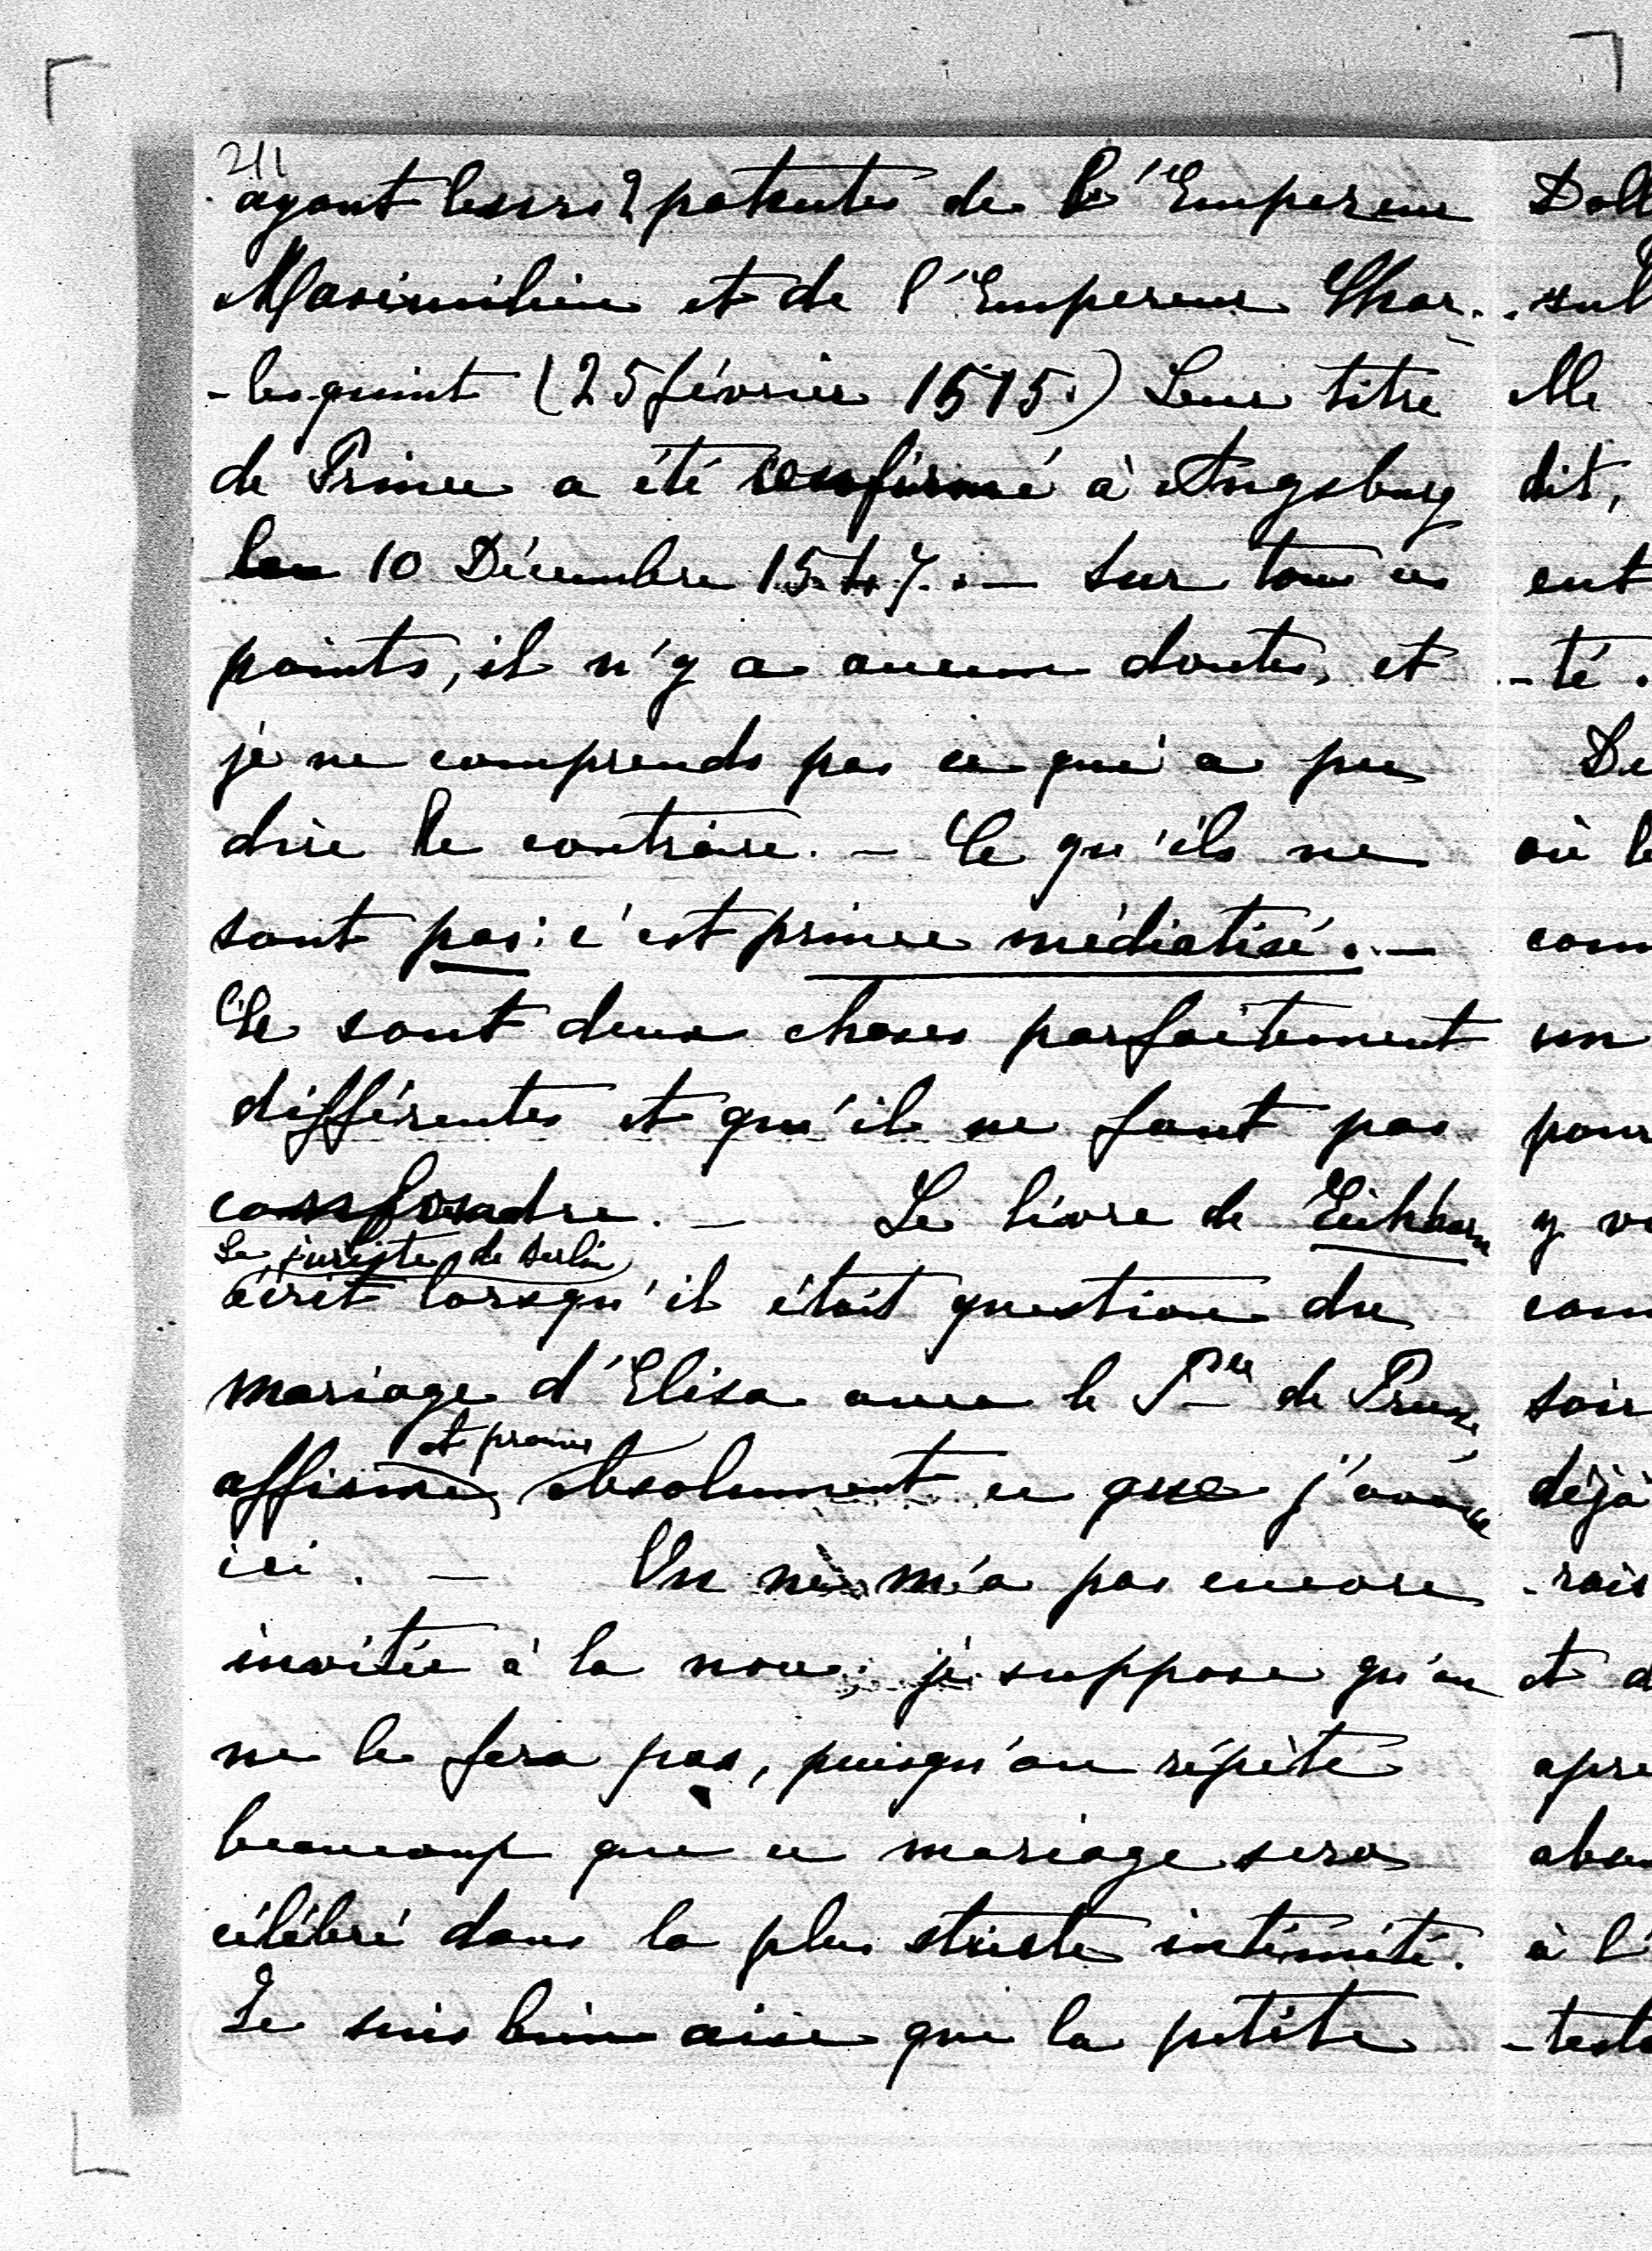 211
ayant leurs 2 patentes de l'Empereur
Maximilien et de l'Empereur Char-
-les-quint (25 février 1515.) Leur titre
de Prince a été confirmé à Augsburg
le 10 Décembre 1547. — Sur tous ces
points, il n'y a aucun doute, et
je ne comprends pas ce qui a pu
dire le contraire. — Ce qu'ils ne
sont pas: c'est prince médiatisé. —
Ce sont deux choses parfaitement
différentes et qu'il ne faut pas
confondre. — Le livre de Eichhorn
le juriste de Berlin
écrit lorsqu'il était question du
mariage d'Elisa avec le Pce de Prusse,
et prouve
affirme absolument ce que j'avance
ici. — On ne m'a pas encore
invitée à la noce; je suppose qu'on
ne le fera pas, puisqu'on répète
beaucoup que ce mariage sera
célébré dans la plus stricte intimité.
Je suis bien aise que la petite
Doll
sul
Me
dit,
ent
-té.
De
où le
com
un
pour
y ve
com
soir
déjà
-rais
et d
apre
abu
à l'
-teste